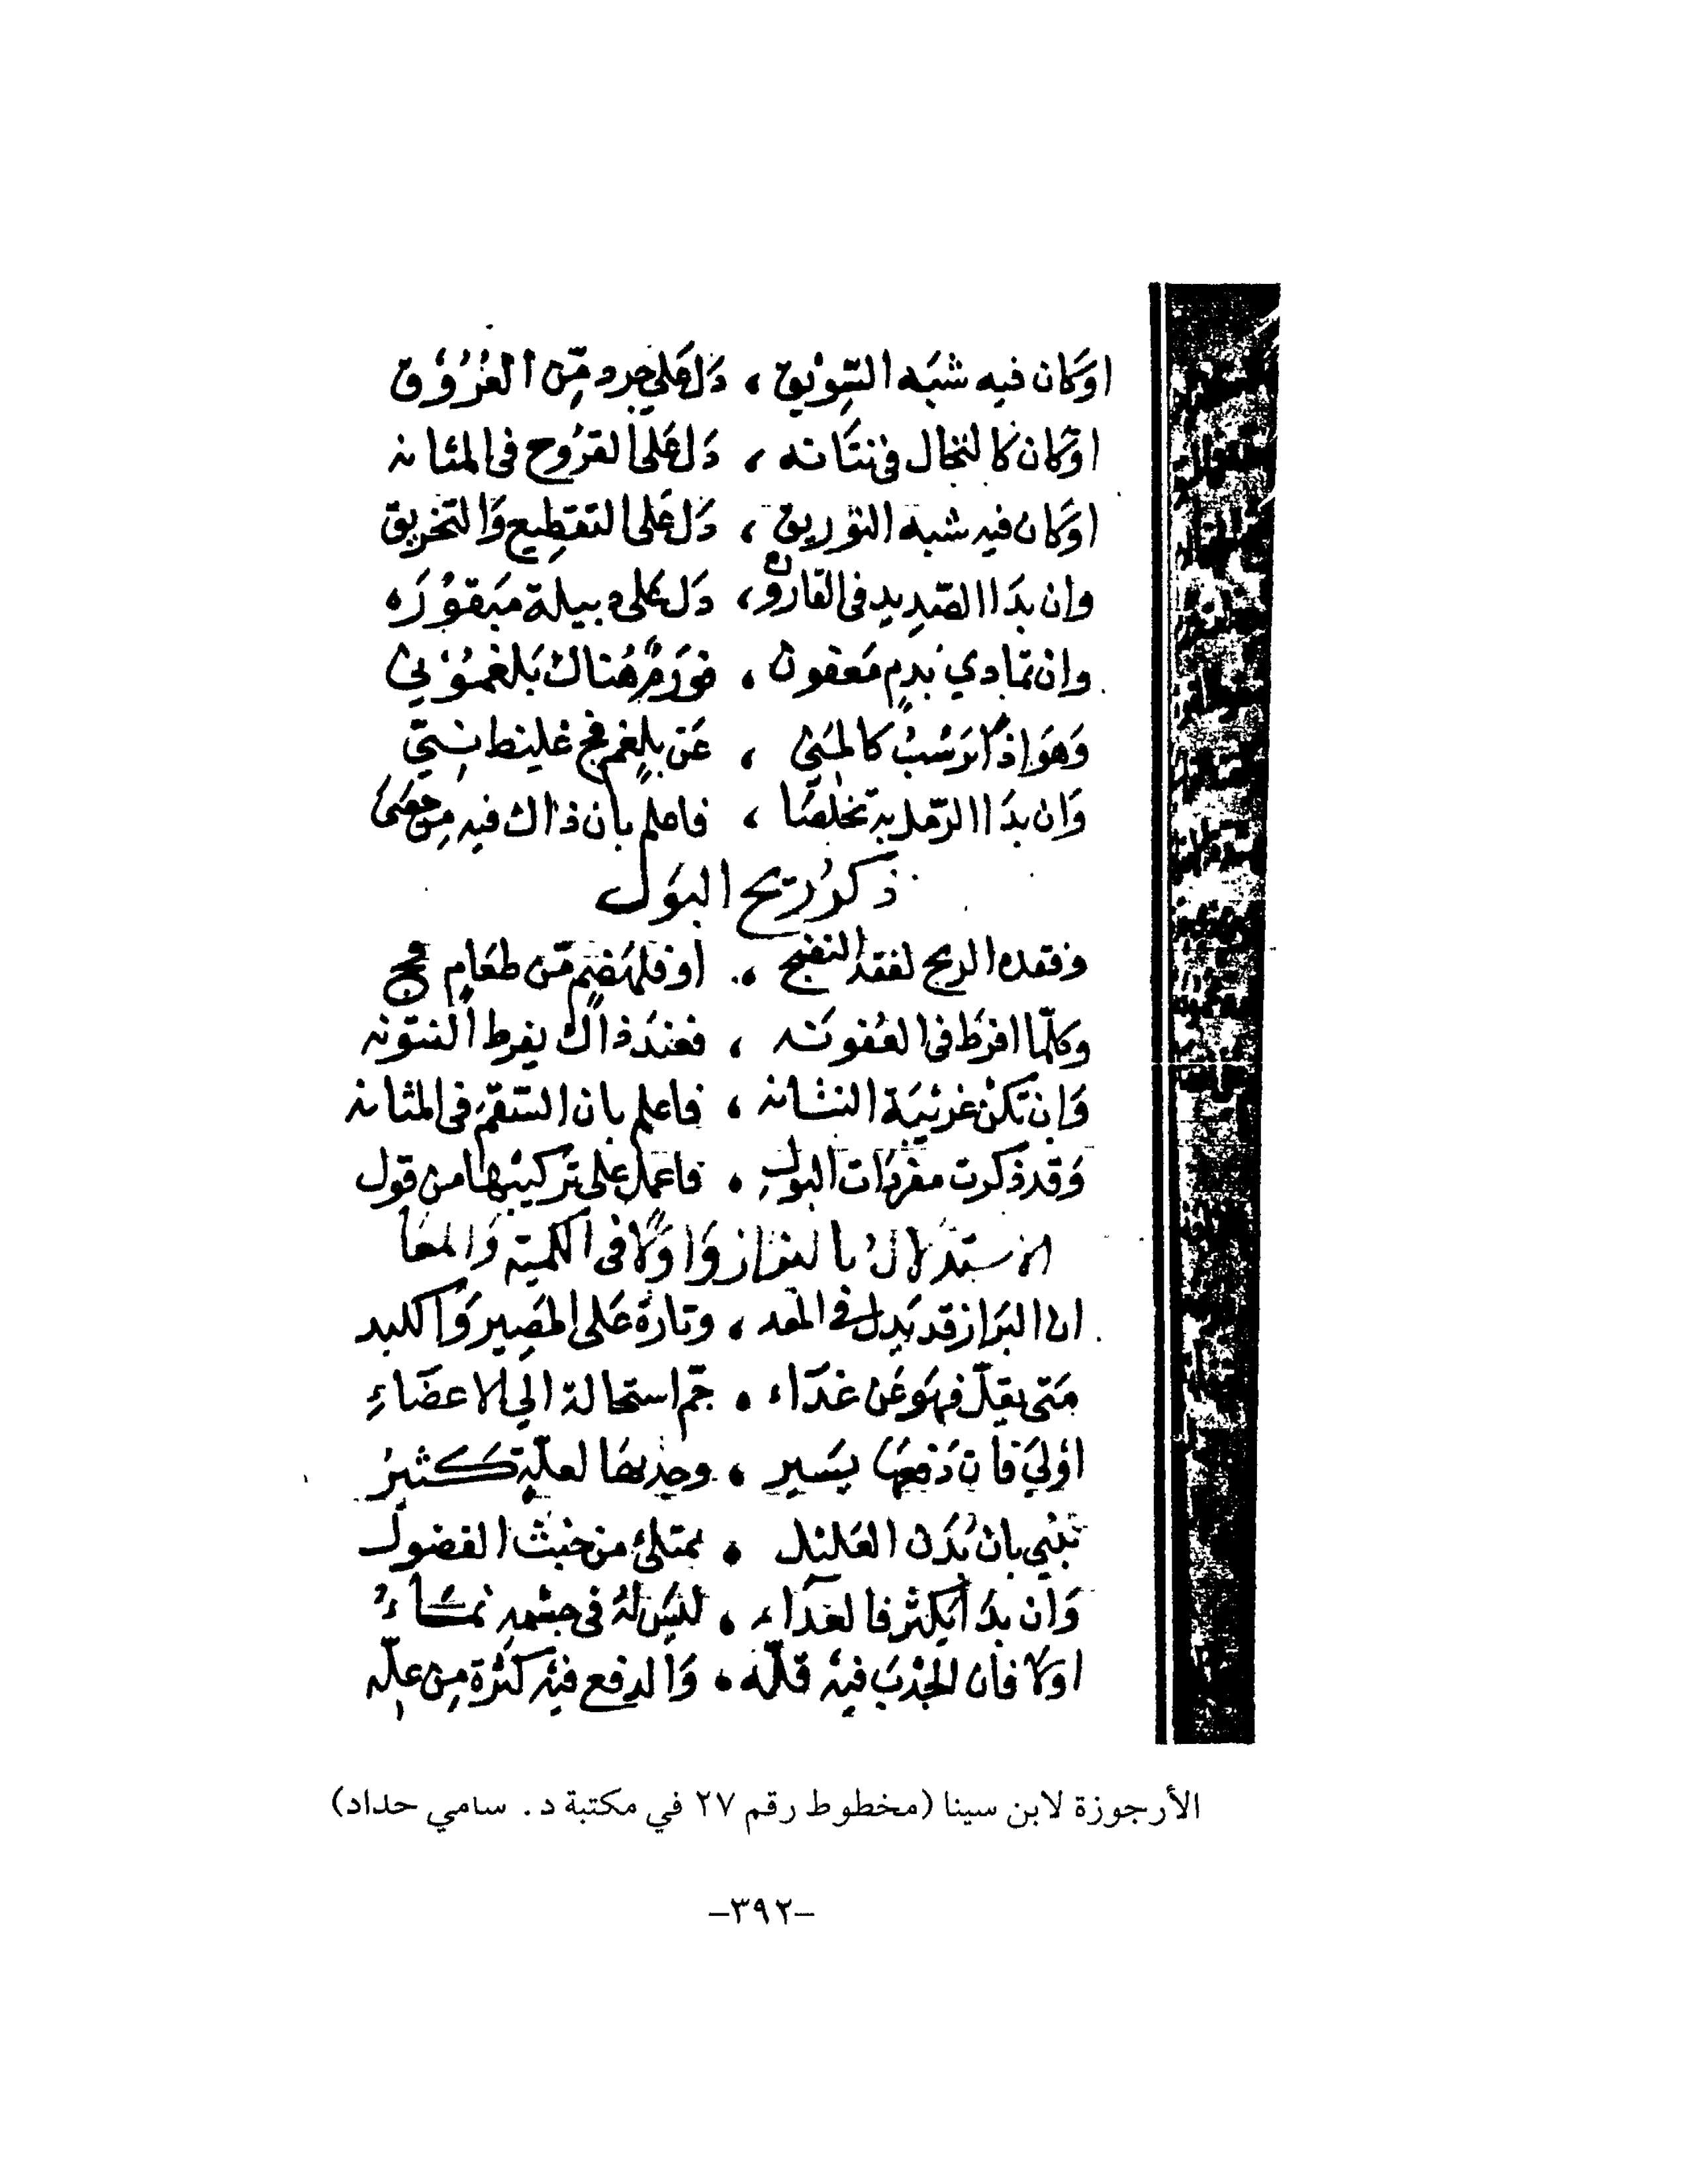 اوكان فيه شبه السّويق ، دَل عَلي جرد مّن العُرُوق
اوكان كالنخال فى نتَانه ، دَل عَلى القرُوح فى المثانه
اوكان فيه شبه التوريق ، دَل عَلى التقطِيع وَالتخريق
وان بدَا الصّديد فى القاروره ، دَل على دبيلة مبَقوُرَه
وان تمادي بَدمٍ مَعفون ، فورَمٌ هُناك بَلغمُونى
وَهوَ اذا رَسَبُ كالمَني ، عَن بلغمٍ فج غليظ نِىّ
وَان بدَا الرّمل به تخلصَا ، فاعلم بان ذاك فيه مِن حصَىً
ذكرُ ريح البَول
وفقده الريح لفقد النضج ، او قلهَضم مّن طعَامٍ فج
وكلّما افرَط فى العُفونَه ، فعِندَ ذاك يفرط النتونه
وَان تكنْ غرِيبَة النتانه ، فاعلم بان السّقمَ فى المثانه
وَقد ذكرت مفردَات البَولِ ، فاعمل على تركيبها من قول
الاستدلالُ بالبرَاز وَاوّلًا فى الكميّه وَالمعَا
ان البرَاز قد يَدل فى المعَد ، وتارةً عَلى المصَير وَالكبد
مَتى يقلّ فهَو عَن غدَاء ، جَم استحالة الي الاعضَاءِ
اوليَ فان دَفعهَا يسَير ، وجذبهَا لعلّةٍ كثيرُ
تنبي بان بَدَن العَليل ، ممتلئ من خبث الفضول
وَان بدَا يَكثر فالغدَاء ، ليسَ لهُ فى جسْمهِ نمَاءُ
اولا فان الجذبَ فيهْ قلّه ، وَالدفع فيه كثرة مِن علّه
الأرجوزة لابن سينا (مخطوط رقم ٢٧ في مكتبة د. سامي حداد)
-٣٩٢-